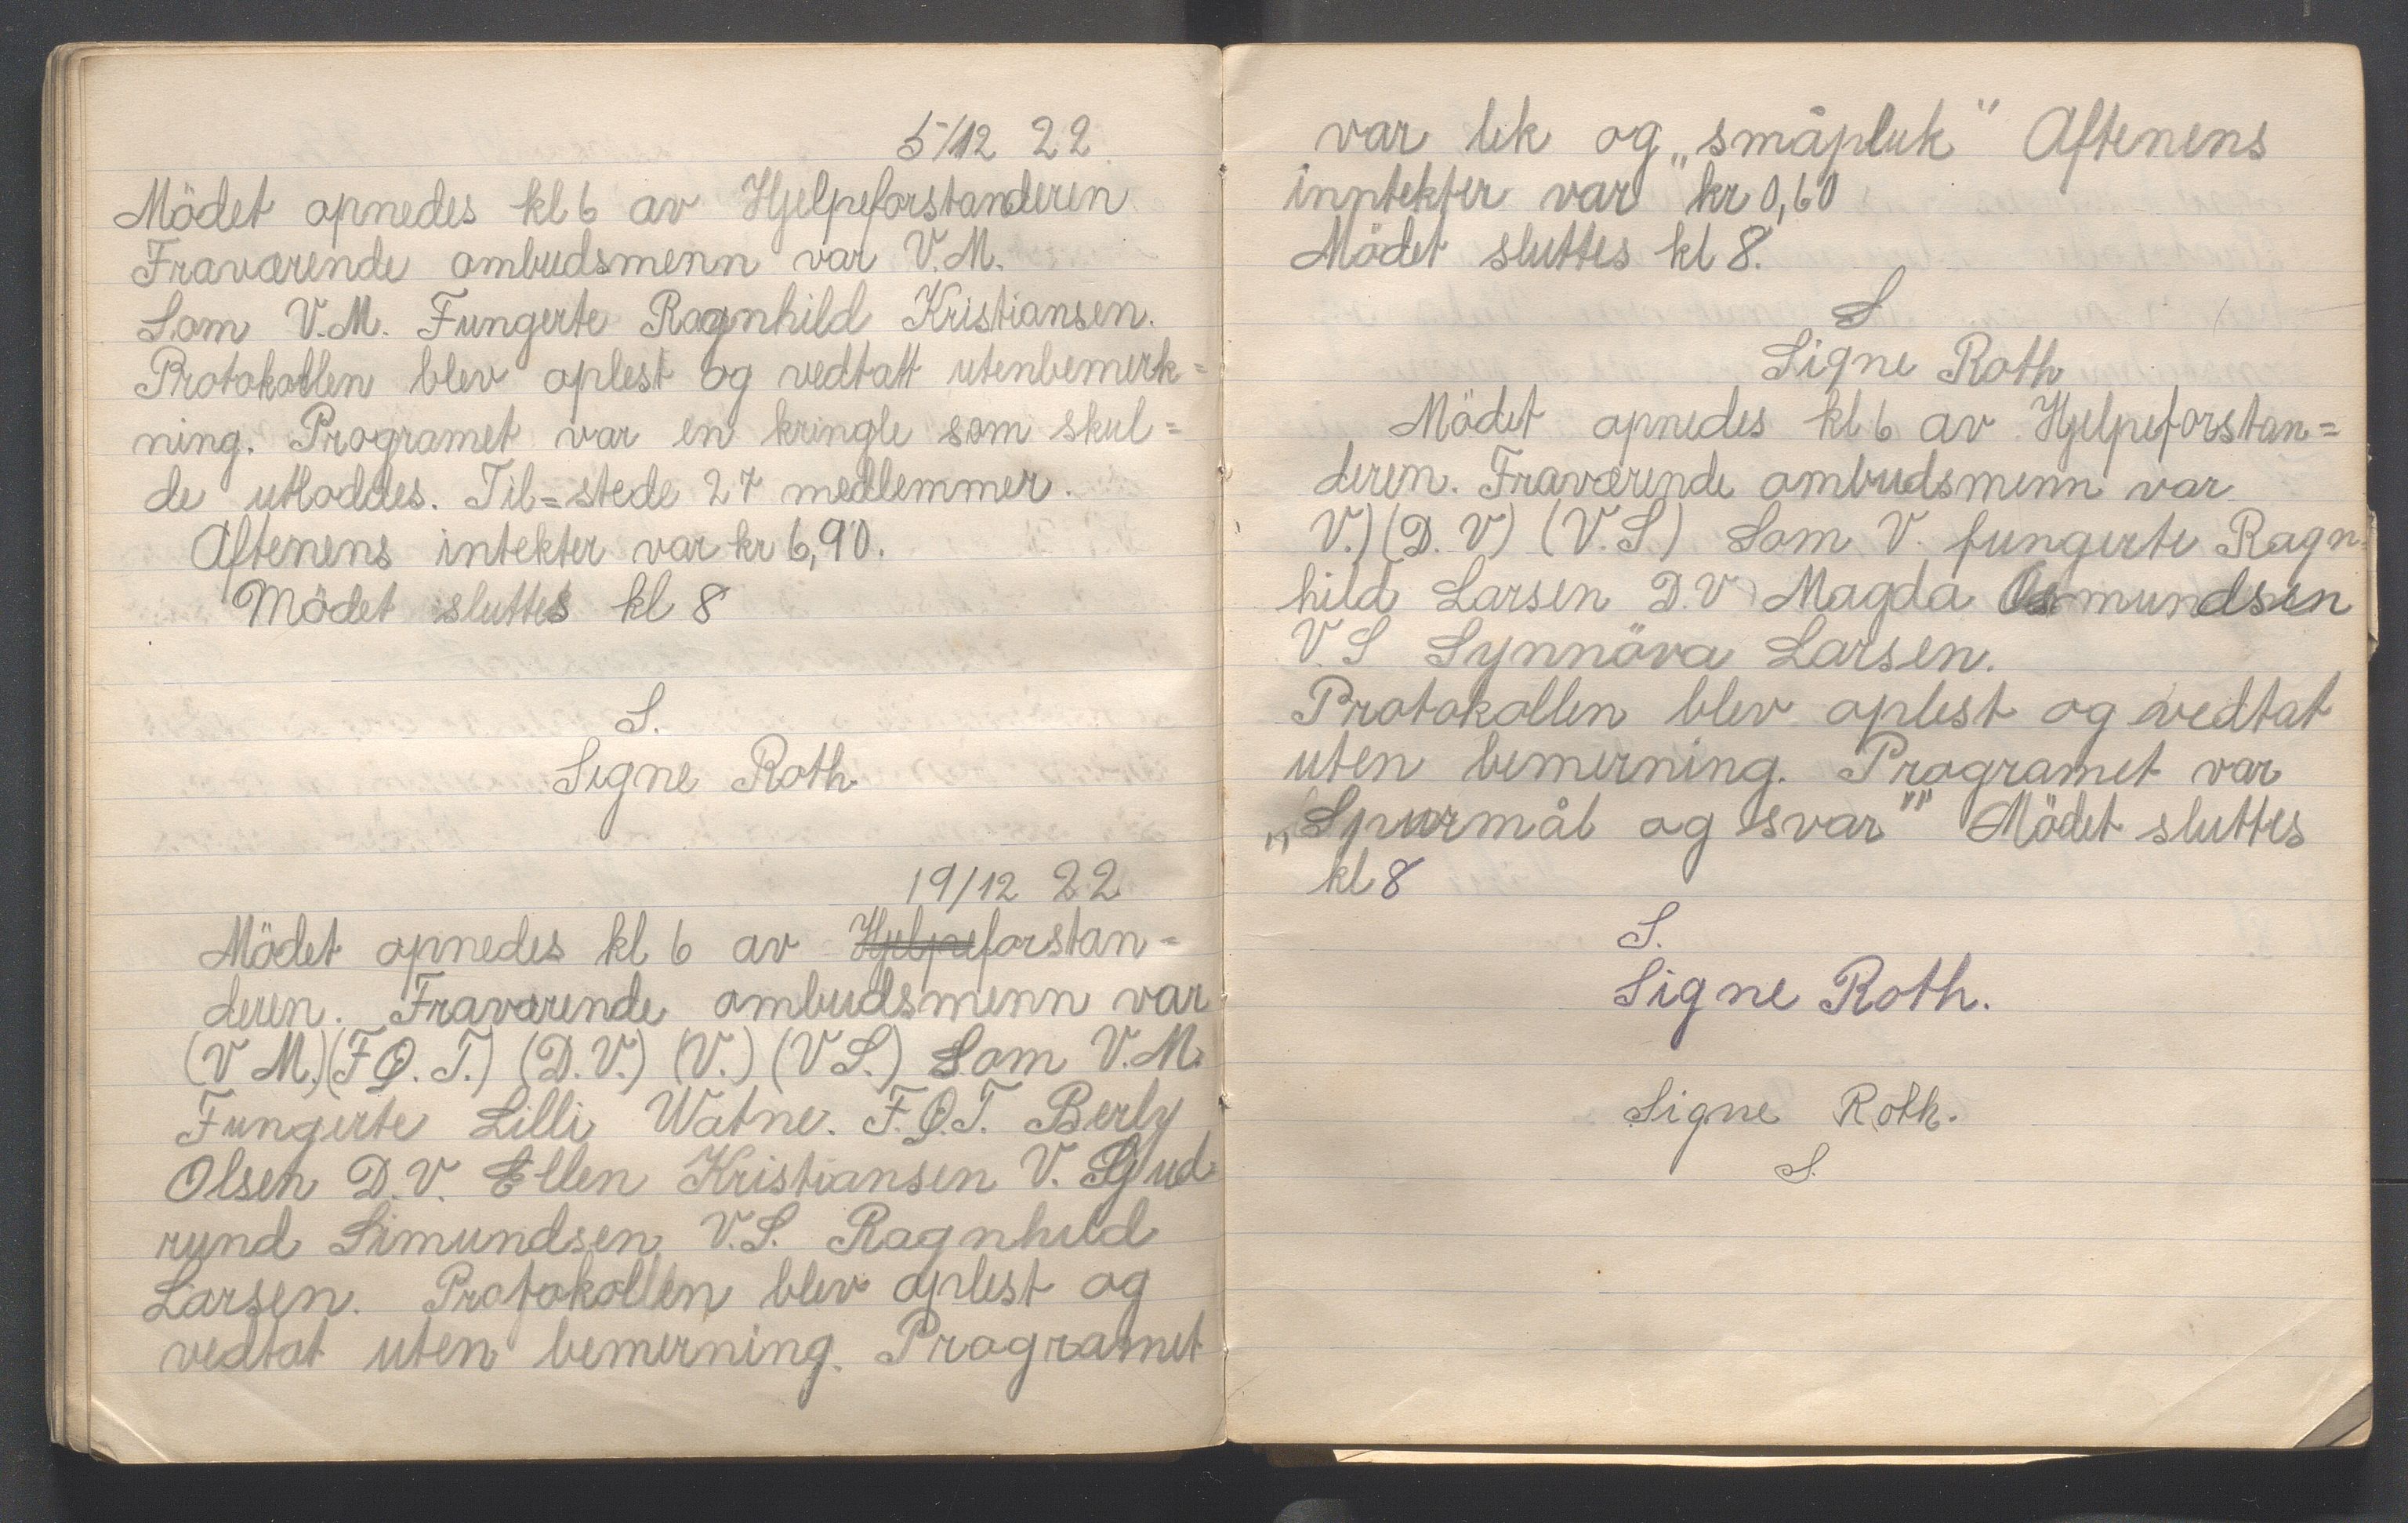 5/12 22.
Mödet opnedes kl 6 av Hjelpeforstanderen
Fraværende ombudsmenn var V.M.
Som V.M. Fungerte Ragnhild Kristiansen.
Protokollen blev oplest og vedtatt utenbemerk=
ning. Programet var en kringle som skul=
de utloddes. Til=stede 27 medlemmer.
Aftenens intekter var kr 6,90.
Mödet sluttes kl 8
S.
Signe Roth
19/12 22
Mödet opnedes kl 6 av Hjelpeforstan=
deren. Fraværende ombudsmenn var
(V M.) (F.O.T.) (D.V.) (V.) (V S.) Som V.M.
Fungerte Lilli Watne. F.O.T. Berly
Olsen D.V. Ellen Kristiansen V. Gud
rund Simundsen V.S. Ragnhild
Larsen. Protokollen blev oplest og
vedtat uten bemerning. Programet
var lek og „småpluk" Aftenens
inntekter var kr 0,60
Mödet sluttes kl 8.
S
Signe Roth
Mödet opnedes kl 6 av Hjelpeforstan=
deren. Fraværende ombudsmenn var
V.) (D. V) (V.S) Som V. fungerte Ragn=
hild Larsen D.V Magda Osmundsen
V.S Synnöva Larsen.
Protokollen blev oplest og vedtat
uten bemerning. Programet var
„Spurmål og svar" Mödet sluttes
kl 8
S.
Signe Roth.
Signe Roth.
S.